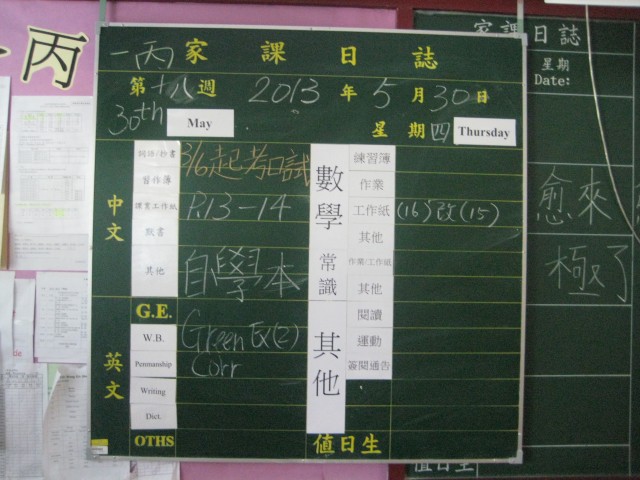 一丙 家課日誌
第十八週 2013年5月30日
30th May 星期四 Thursday
中文
詞語/抄書 3/6起考口試
習作簿
讀寫工作紙 P.13-14
默書
其他 自學本
英文
G.E.
W.B. Green Ex(2)
Penmanship Corr
Writing
Dict.
OTHS
數學
練習簿
作業
工作紙 (16)改(15)
其他
常識
作業/工作紙
其他
其他
閱讀
運動
簽閱通告
值日生
丙
家課日誌
星期
Date:
愈來
極了
值日生